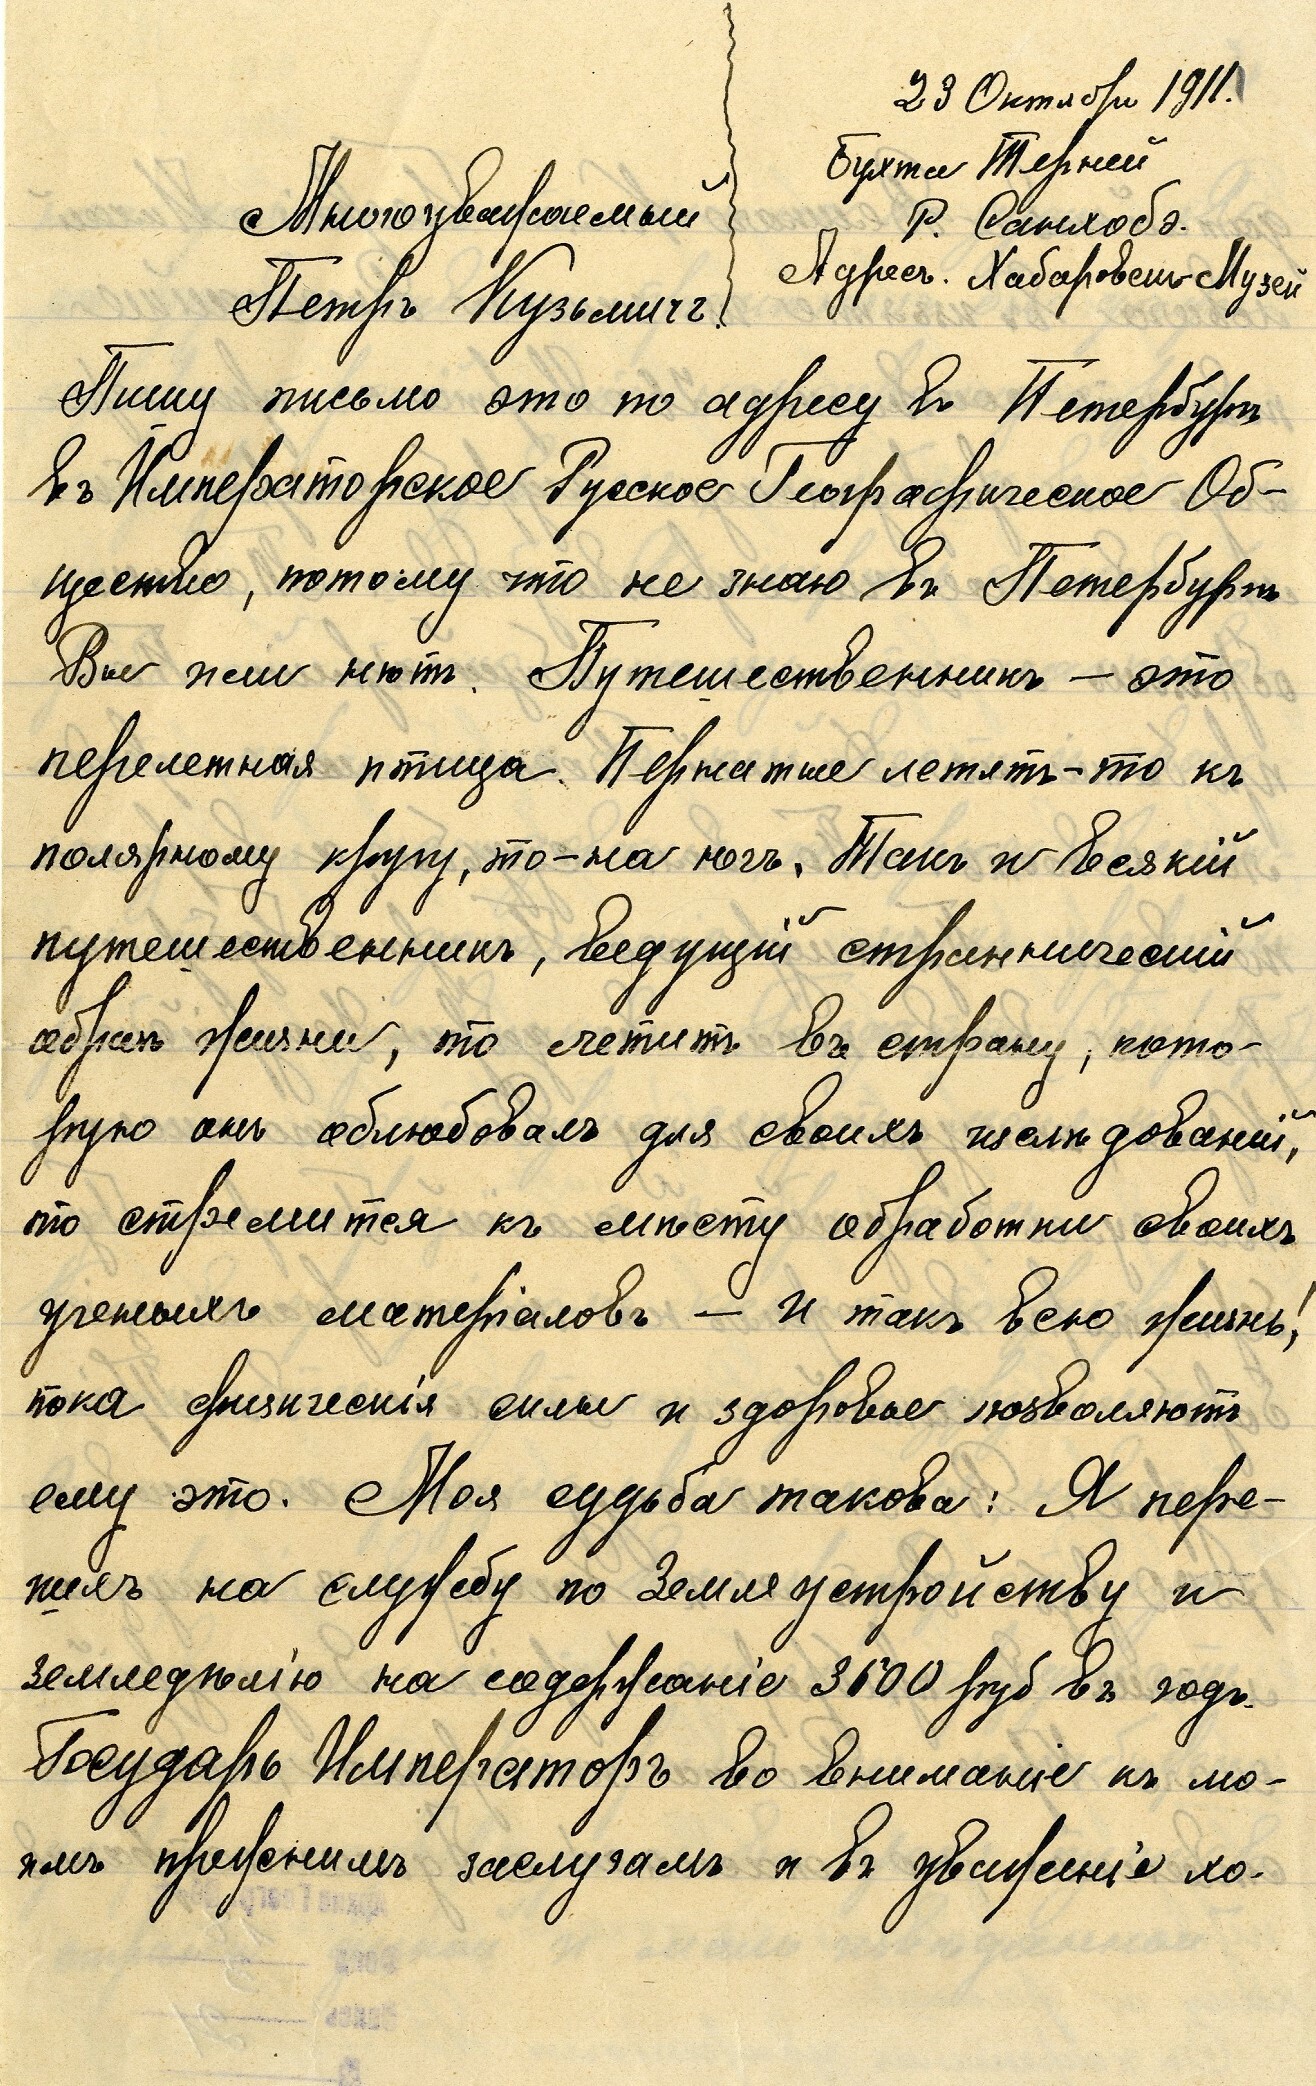 23 Октября 1911.
Бухта Терней
Р. Санхобэ.
Адресъ. Хабаровскъ Музей
Многоуважаемый
Петръ Кузьмичъ.
Пишу письмо это по адресу въ Петербургъ
въ Императорское Русское Географическое Об-
щество, потому что не знаю въ Петербургѣ
Вы или нѣтъ. Путешественникъ — это
перелетная птица. Пернатые летятъ-то къ
полярному кругу, то-на югъ. Такъ и всякій
путешественникъ, ведущій странническій
образъ жизни, то летитъ въ страну, кото-
рую онъ облюбовалъ для своихъ изслѣдованій,
то стремится къ мѣсту обработки своихъ
ученыхъ матеріаловъ — и такъ всю жизнь!
пока физическія силы и здоровье позволяютъ
ему это. Моя судьба такова: Я пере-
шелъ на службу по Землеустройству и
земледѣлію на содержаніе 3600 руб въ годъ.
Государь Императоръ во вниманіе къ мо-
имъ прежнимъ заслугамъ и въ уваженіе хо-